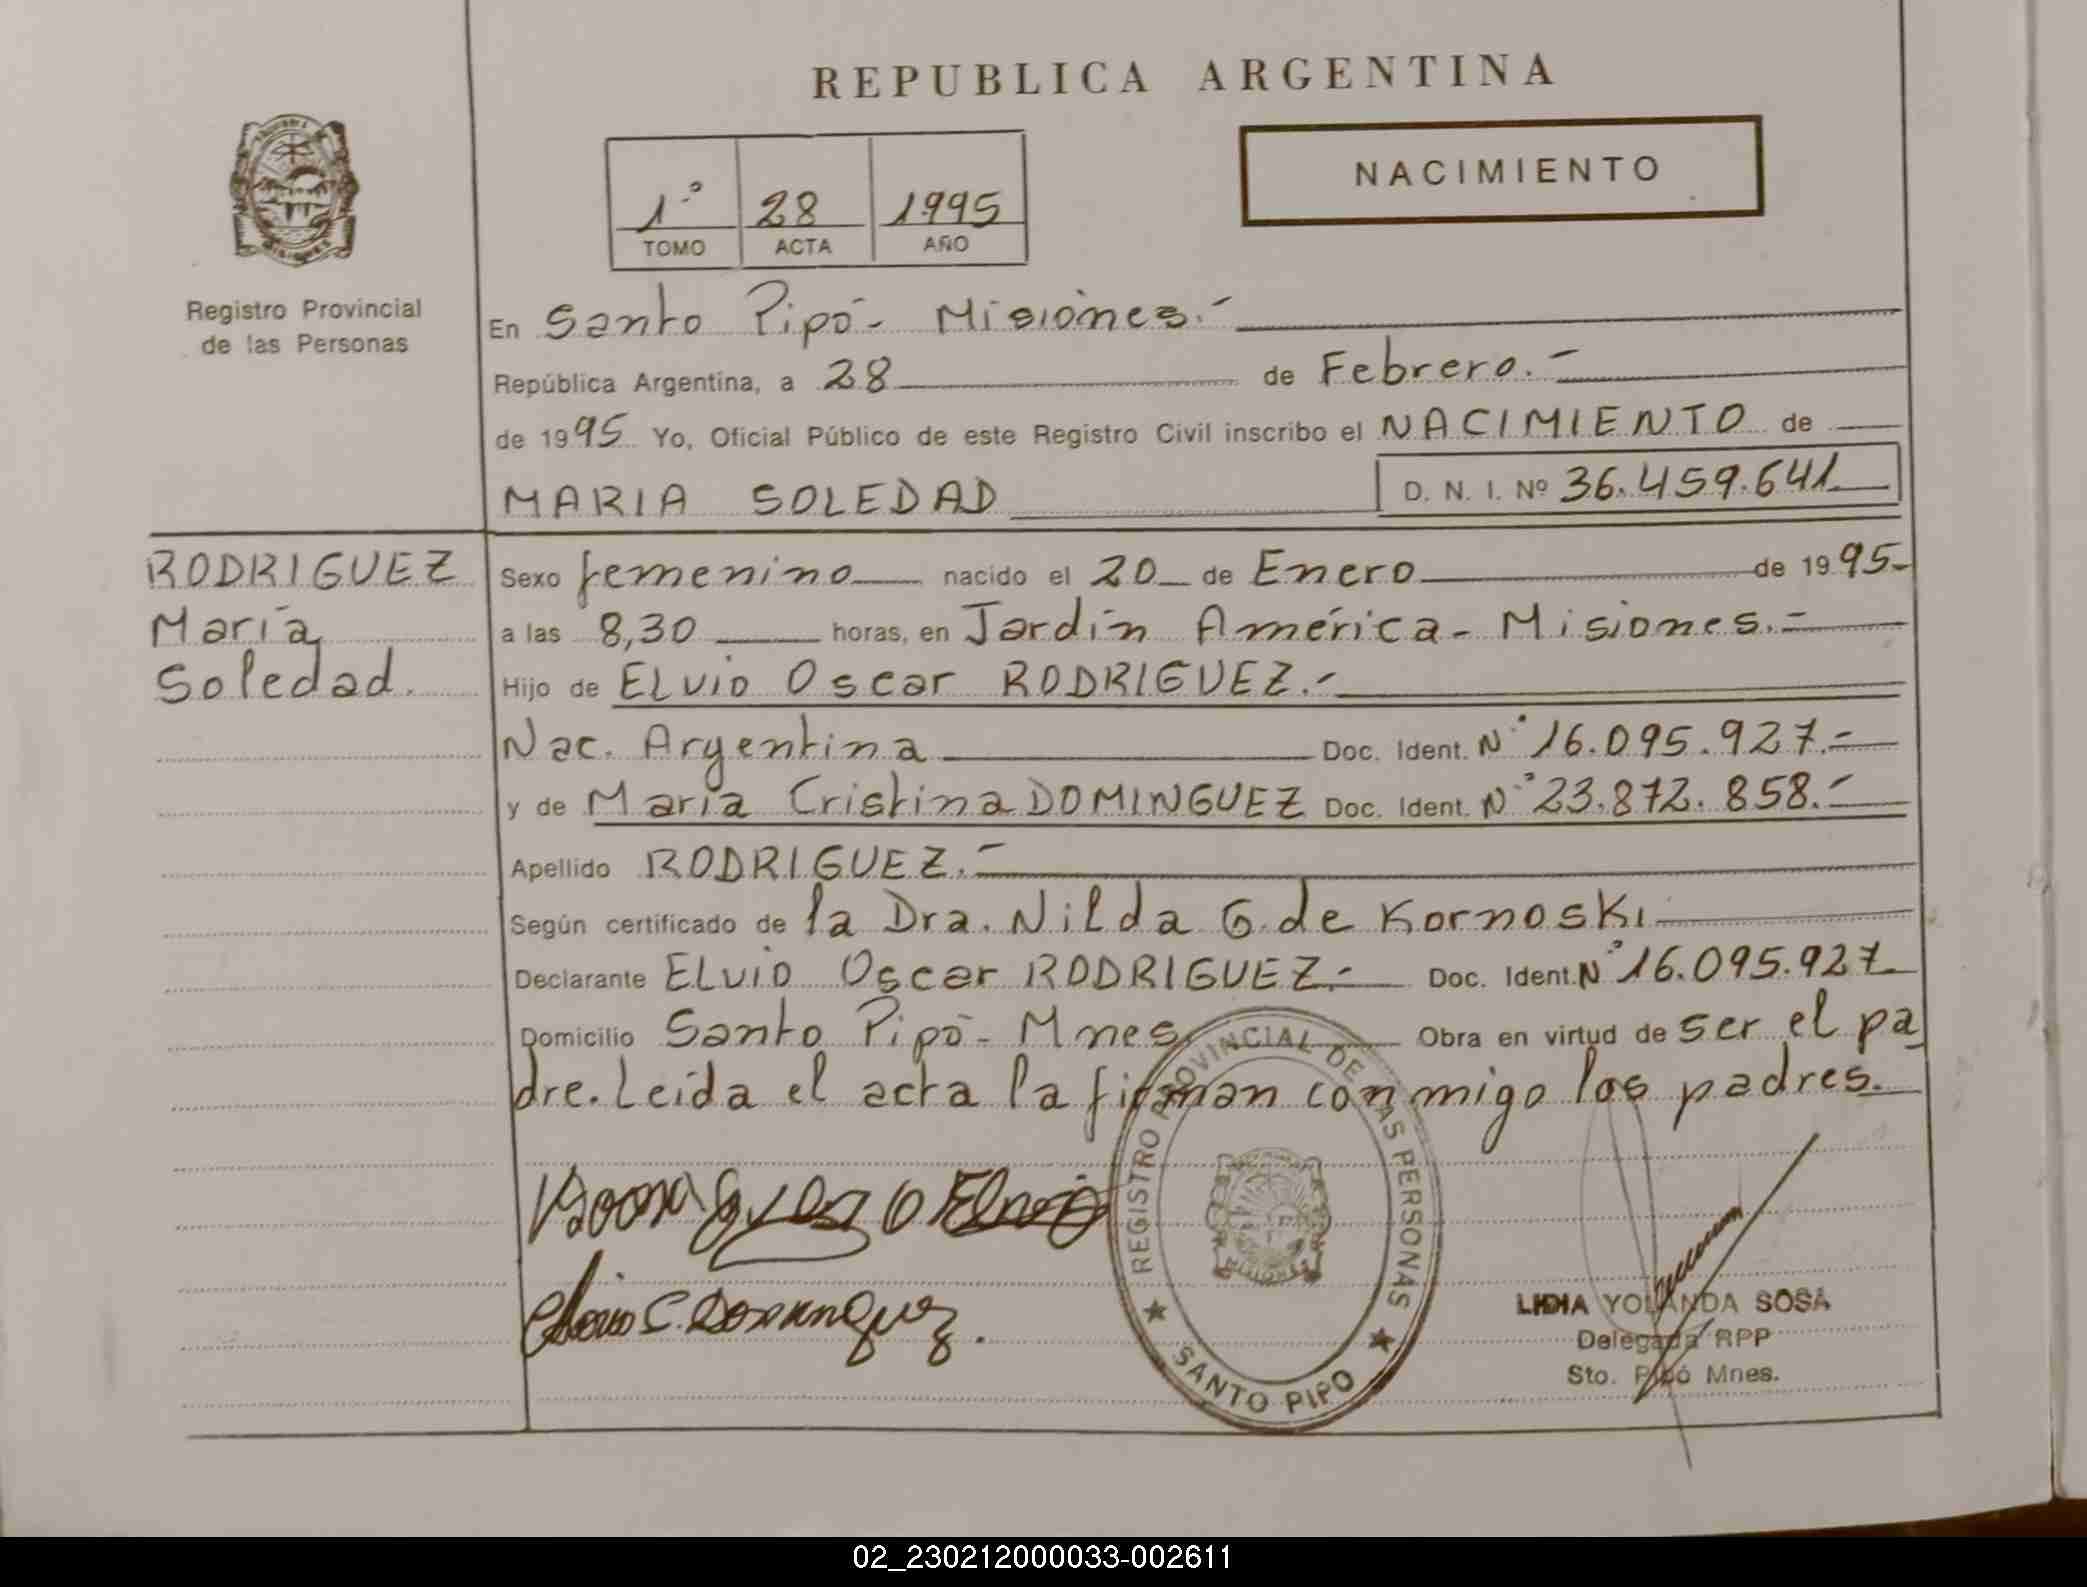 REPUBLICA ARGENTINA
NACIMIENTO
1º 28 1995
TOMO ACTA AÑO
Registro Provincial
de las Personas
En Santo Pipó - Misiones.-
República Argentina, a 28 de Febrero.-
de 1995 Yo, Oficial Público de este Registro Civil inscribo el NACIMIENTO de
MARIA SOLEDAD D. N. I. Nº 36.459.641
RODRIGUEZ
María
Soledad.
Sexo femenino nacido el 20 de Enero de 1995-
a las 8,30 horas, en Jardín América - Misiones.-
Hijo de ELVIO Oscar RODRIGUEZ.-
Nac. Argentina Doc. Ident. Nº 16.095.927.-
y de María Cristina DOMINGUEZ Doc. Ident. Nº 23.872.858.-
Apellido RODRIGUEZ.-
Según certificado de la Dra. Nilda G. de Kornoski
Declarante ELVIO Oscar RODRIGUEZ.- Doc. Ident. Nº 16.095.927
Domicilio Santo Pipó - Mnes Obra en virtud de ser el pa
dre. Leída el acta la firman conmigo los padres.
REGISTRO PROVINCIAL DE LAS PERSONAS
MISIONES
★ SANTO PIPO ★
C. Dominguez.
LIDIA YOLANDA SOSA
Delegada RPP
Sto. Pipó Mnes.
02_230212000033-002611